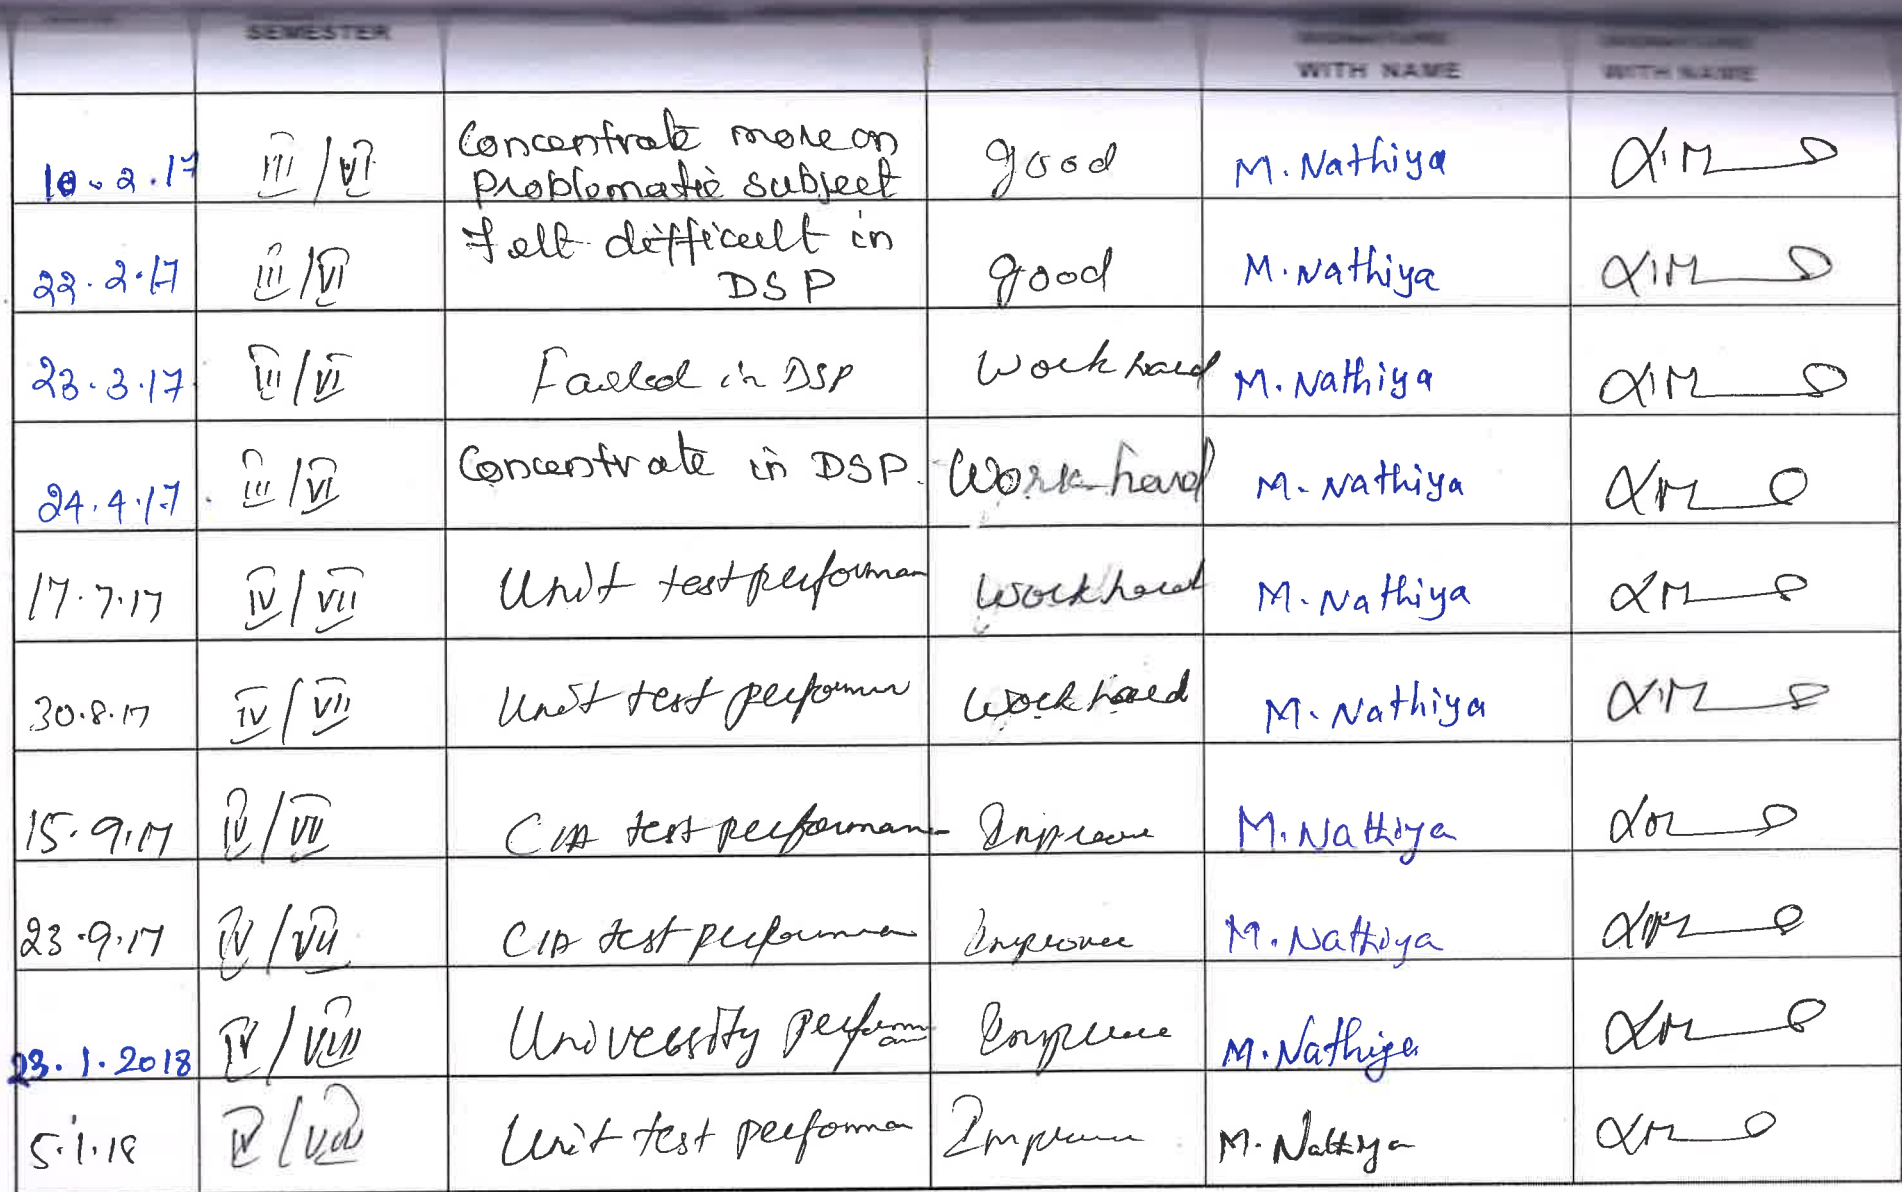 SEMESTER
WITH NAME WITH NAME
10.2.17 III/VI Concentrate more on problematic subject good M. Nathiya
22.2.17 III/VI Felt difficult in DSP good M. Nathiya
23.3.17 III/VI Failed in DSP Work hard M. Nathiya
24.4.17 III/VI Concentrate in DSP. Work hard M. Nathiya
17.7.17 IV/VII Unit test performan Work hard M. Nathiya
30.8.17 IV/VII Unit test performan Work hard M. Nathiya
15.9.17 IV/VII CIA test performan Improve M. Nathiya
23.9.17 IV/VII CIA test performan Improve M. Nathiya
23.1.2018 IV/VIII University performan Improve M. Nathiya
5.1.18 IV/VIII Unit test performan Improve M. Nathiya